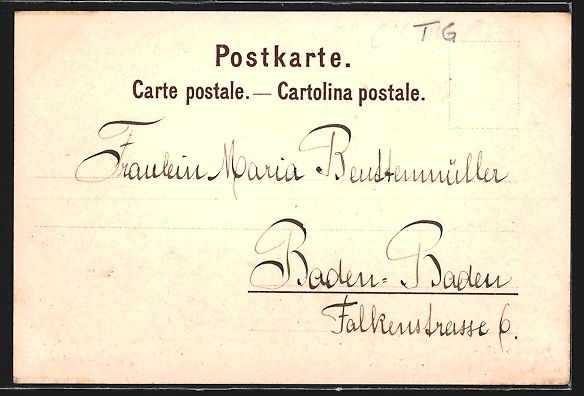 TG
Postkarte.
Carte postale.— Cartolina postale.
Fraulein Maria Beuttenmüller
Baden-Baden
Falkenstrasse 6.